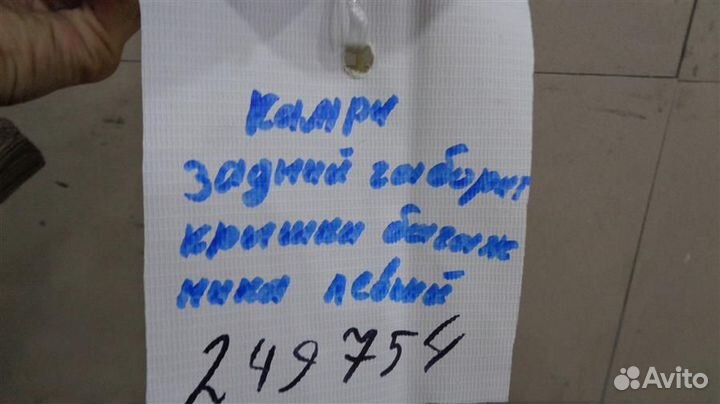 Камри
задний габорит
крышки багаж
ника левый
249754
Avito